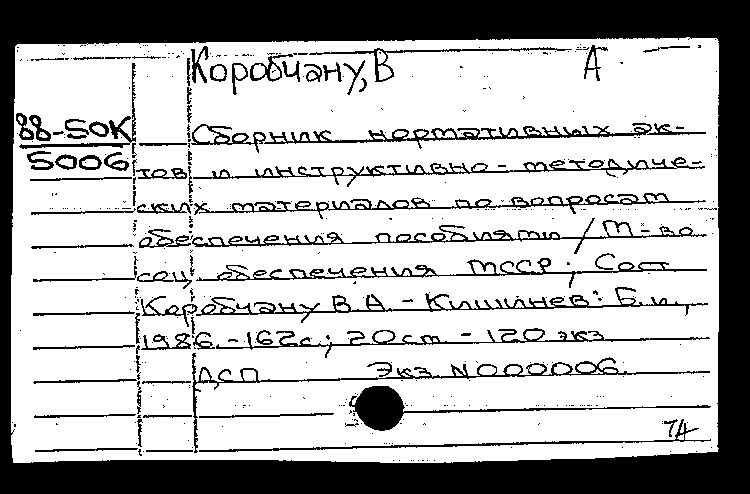 Коробчану, В А
88-50К
5006
Сборник нормативных ак-
тов и инструктивно-методиче-
ских материалов по вопросам
обеспечения пособиями / М-во
соц. обеспечения МССР; Сост.
Коробчану В.А. - Кишинев: Б.и.,
1986. - 162с.; 20см - 120 экз
ДСП Экз N000006.